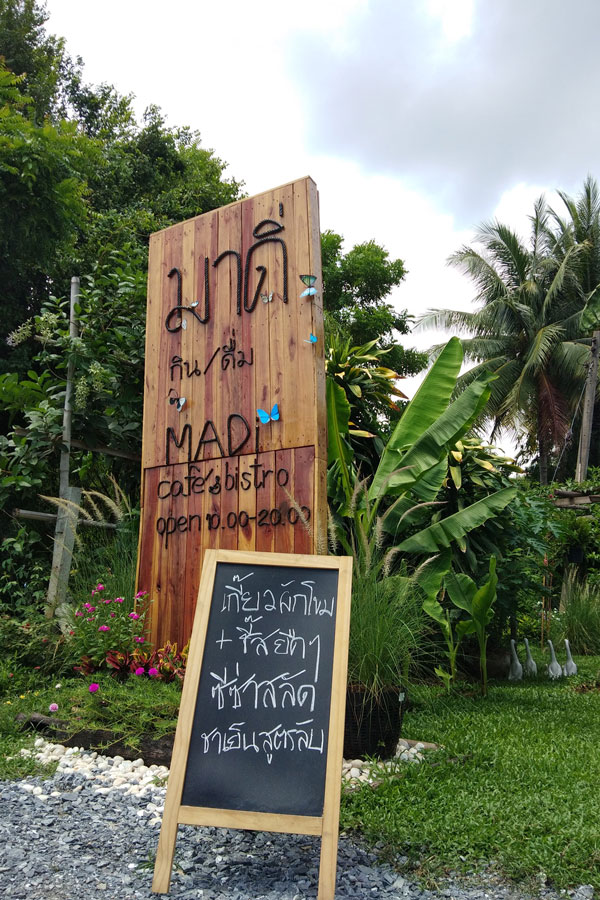 มาดิ่
กิน/ดื่ม
MADi
cafe & bistro
open 10.00-20.00
เกี๊ยวผักโขม
+ ชี๊สยืดๆ
ซีซ่าสลัด
ชาเย็นสูตรลับ